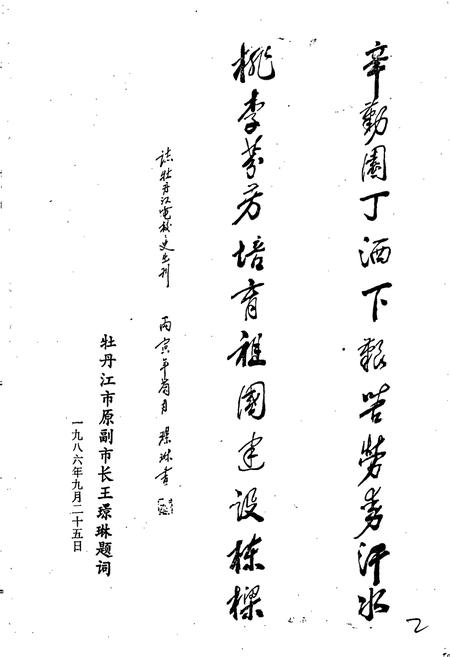 辛勤園丁洒下艰苦劳动汗水
桃李芬芳培育祖國建设栋樑
读牡丹江电校史丛刊 丙寅年菊月 璟琳書
牡丹江市原副市长王璟琳题词
一九八六年九月二十五日
2